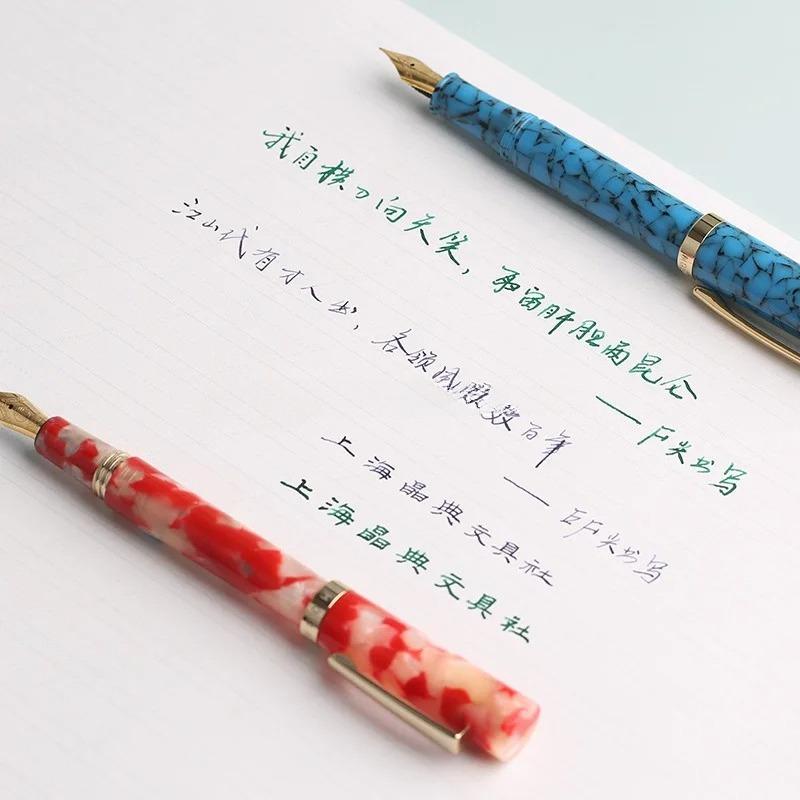 我自横刀向天笑，去留肝胆两昆仑
——F尖书写
江山代有才人出，各领风骚数百年
——EF尖书写
上海晶典文具社
上海晶典文具社